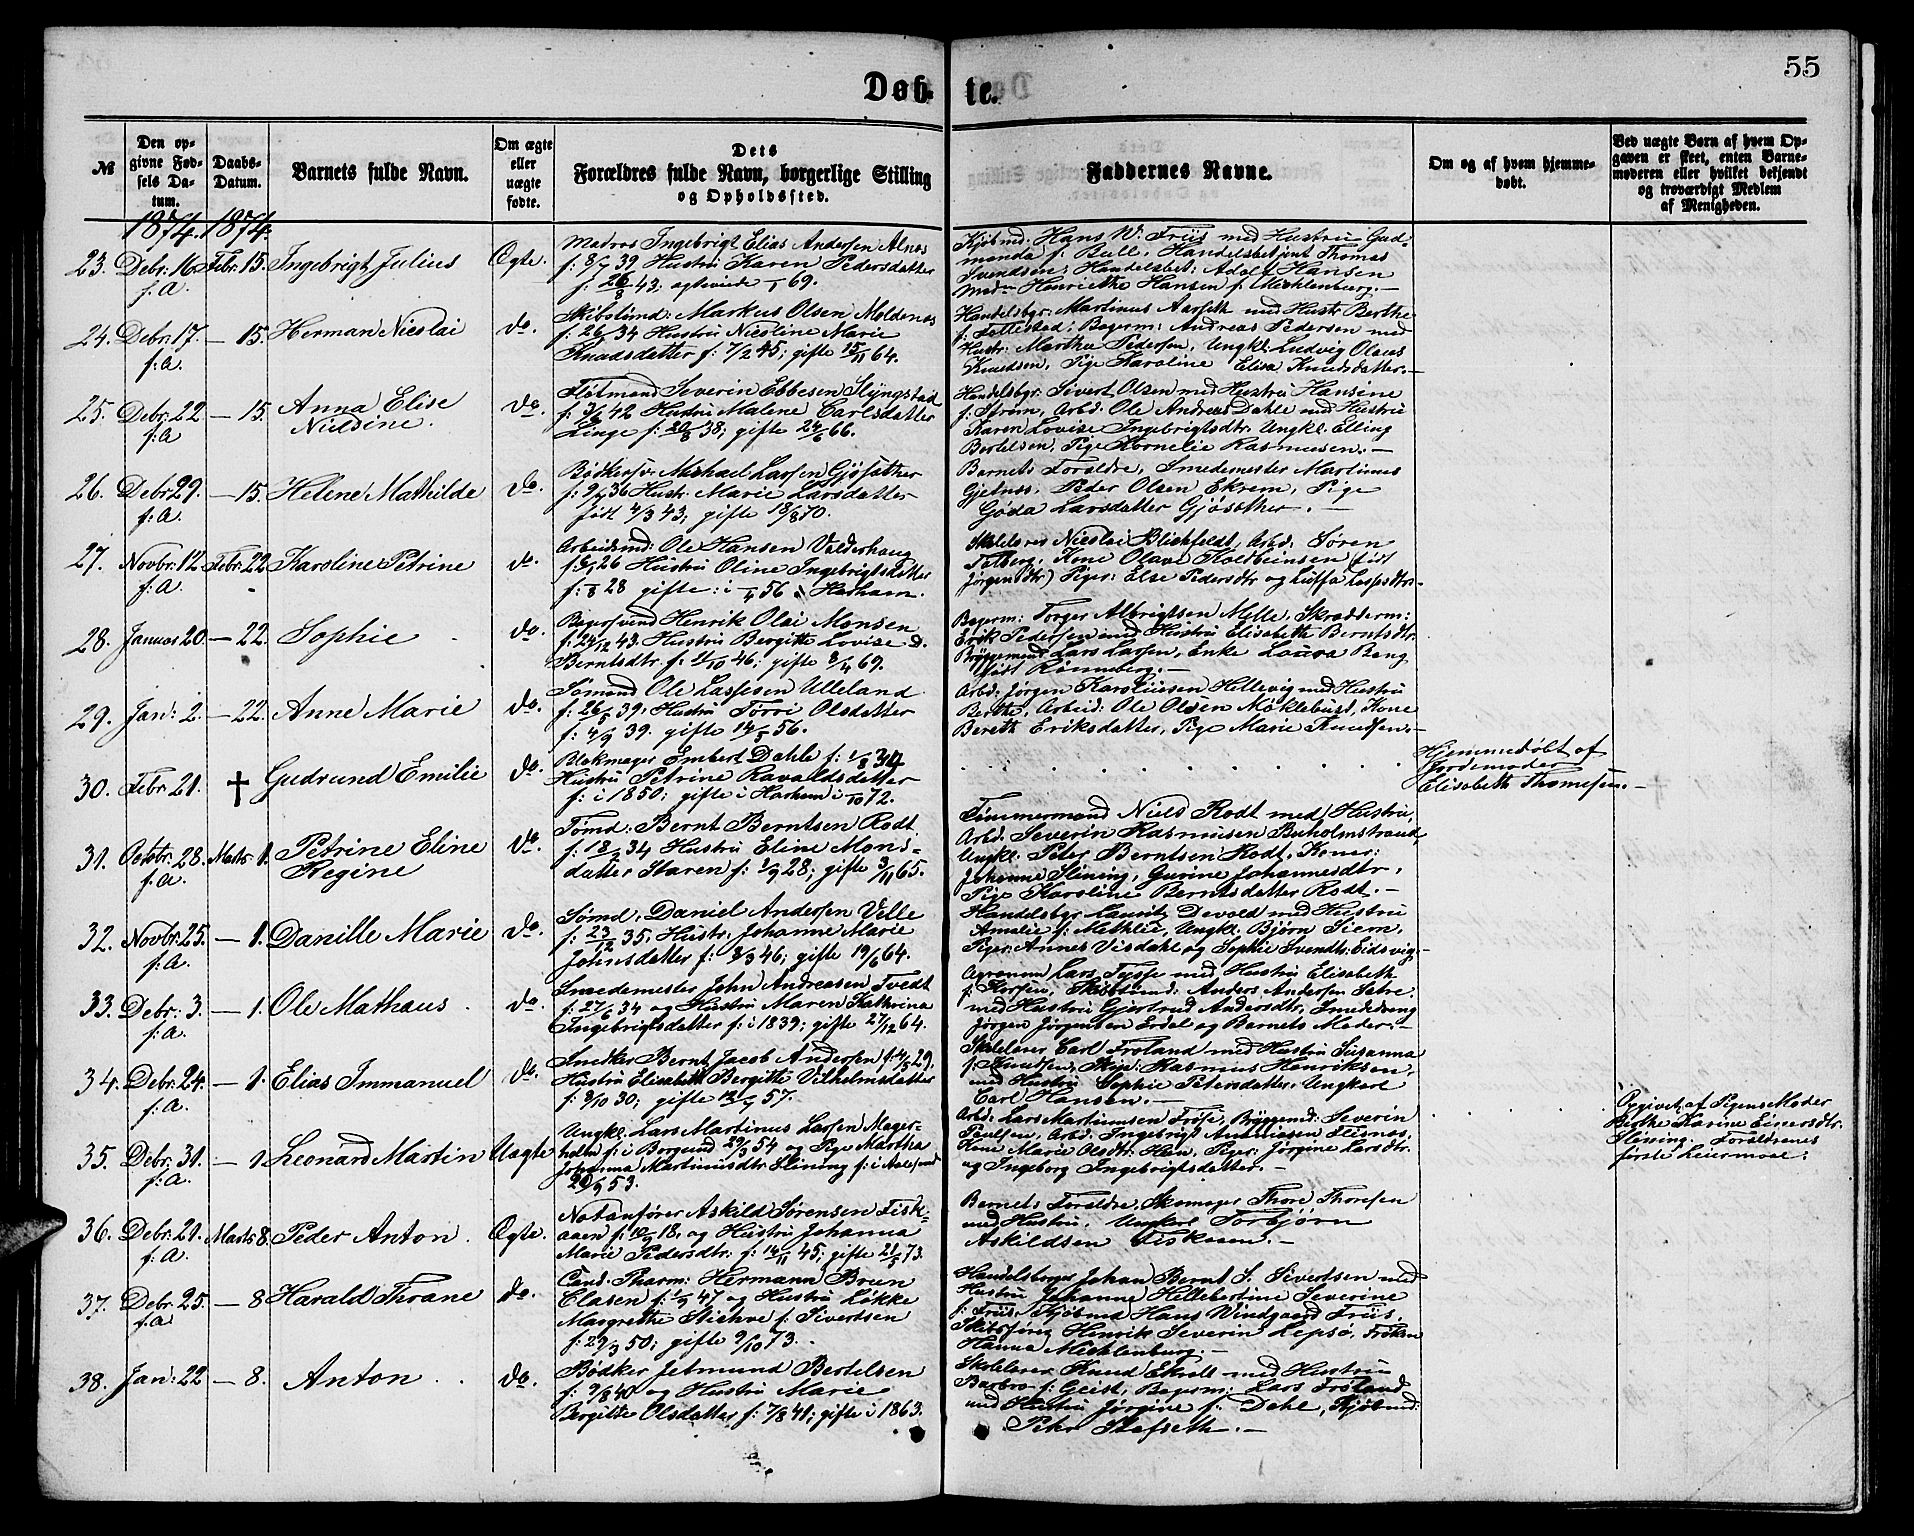 55
Døb-
te.
№
Den op-
givne Fød-
sels Da-
tum.
Daabs-
Datum.
Barnets fulde Navn.
Om ægte
eller
uægte
fødte.
Dets
Forældres fulde Navn, borgerlige Stilling
og Opholdssted.
Faddernes Navne.
Om og af hvem hjemme-
døbt.
Ved uægte Børn af hvem Op-
gaven er skeet, enten Barne-
moderen eller hvilket bekjendt
og troværdigt Medlem
af Menigheden.
1874. 1874.
23. Debr: 16 Febr: 15. Ingebrigt Julius Ægte.
f: A.
Matros Ingebrigt Elias Andersen Alnæs
f: 8/7 39 Hustru Karen Pedersdatter
f: 26/8 43; ægteviede 69.
Kjøbmd: Hans W: Friis med Hustru Gud-
manda f: Bull, Handelsbetjent Thomas
Svendsen, Handelsbet: Adolf Hansen
Mad: Henriette Hansen f: Mechlenburg.—
24. Debr: 17. — 15. Herman Nicolai do.
f: A.
Skibstmd: Markus Olsen Moldenæs
f: 26/7 34 Hustru Nicoline Marie
Knudsdatter f: 7/2 45; gifte 15/11 64.
Handelsbgr: Martinus Aarseth med Hustr: Berthe
f: Tollestad; Bagerm: Andreas Pedersen med
Hustr: Martha Pedersen, Ungkl: Ludvig Olaus
Knudsen, Pige Karoline Elisa Knudsdatter.—
25. Debr: 22 — 15. Anna Elise do.
f: A Nielsine.
Fløtmand Severin Ebbesen Slyngstad
f: 3/6 42 Hustru Malene Carlsdatter
Linge f: 20/8 38; gifte 24/6 66.
Handelsbgr: Sivert Olsen med Hustru Hansine
f: Strøm, Arbd: Ole Andreas Dahle med Hustru
Karen Lovise Ingebrigtsdtr: Ungkl: Elling
Bertelsen, Pige Kornelie Rasmusen.—
26. Debr: 29. — 15. Helene Mathilde do.
f: A.
Bødkersv: Michael Larsen Gjøsether
f: 9/7 36 Hustr: Marie Larsdatter
født 4/3 43; gifte 18/8 70.
Barnets Forældre, Smedemester Martinus
Gjelnæs, Peder Olsen Ekrem, Pige
Gøda Larsdatter Gjøsether.—
27. Novbr: 12. Febr: 22 Karoline Petrine do.
f: A.
Arbeidsmd: Ole Hansen Valderhaug
26 Hustru Oline Ingebrigtsdatter
f: 28 gifte: i 56 i Harham.
Skolelærer Nicolai Blichfeldt, Arbd: Søren
Tolberg, Kone Olave Koldbeinsen (født
Jørgensdtr) Piger: Else Pedersdtr og Luffa Lassesdtr.—
28. Januar 20. — 22. Sophie do.
Bagersvend Henrik Olai Monsen
f: 24/12 43. Hustru Bergitte Lovise d.
Berntsdtr: f: 11/10 46; gifte 8/4 69.
Bagerm: Torger Albrigtsen Melle, Skrædderm:
Erik Pedersen med Hustru Elisabethe Berntsdtr.
Bryggemand Lars Larsen, Enke Laura Bang
født Rønneberg.—
29. Jan: 2. — 22. Anne Marie do.
Sømand Ole Lassesen Ulleland
f: 26/5 39; Hustru Torri Olsdatter
f: 4/9 39. gifte 14/5 56.
Arbd: Jørgen Karoliusen Hellevig med Hustru
Berthe, Arbeid: Ole Olsen Møklebust, Kone
Bereth Eriksdatter, Pige Marie Knudsen.—
30. Febr: 21. † Gudrund Emilie do.
Blokmager Embert Dahle f: 1/8 34
Hustru Petrine Ravaldsdatter
f: i 1850; gifte i Harham i /10 72.
Hjemmedøbt af
Jordemoder
Elisabeth Thomesen.—
31. Octobr: 28. Marts 1. Petrine Eline do.
f: A. Regine
Tømd: Bernt Berntsen Rodt
f: 18/2 34 Hustru Eline Mons-
datter Staren f: 1/9 28; gifte 3/11 65.
Tømmermand Niels Rodt med Hustru,
Arbd: Severin Rasmusen Buholmstrand,
Ungkl: Peter Berntsen Rodt, Koner:
Johanne Slining, Gurine Johannesdtr,
Pige Karoline Berntsdatter Rodt.—
32. Novbr: 25. — 1. Danille Marie do.
f: A.
Sømd: Daniel Andersen Velle
f: 23/12 35, Hustr: Johanne Marie
Johnsdatter f: 8/3 46; gifte 19/6 64.
Handelsbgr Lauritz Devold med Hustru
Amalie f: Methlie, Ungkl: Bjørn Siem,
Piger: Annes Visdahl og Sophie Svendts: Eidsvig.—
33. Debr: 3. — 1. Ole Mathæus do.
f: A.
Smedemester John Andreasen Tvedt
f: 27/6 34 og Hustru Maren Kathrine
Ingebrigtsdatter f: i 1839; gifte 27/12 64.
Agronom Lars Tysse med Hustru Elisabeth
f: Korsen, Skibstmd: Anders Andersen Sætre
med Hustru Gjertrud Andersdtr, Smeddreng
Jørgen Jørgensen Erdal og Barnets Moder.—
34. Debr: 24. — 1. Elias Immanuel do.
f: A.
Snedker Bernt Jacob Andersen f: 4/5 29,
Hustru Elisabeth Bergitte Vilhelmsdatter
f: 8/10 30; gifte 13/9 57.
Skolelærer Carl Frøland med Hustru Susanna
f: Knudsen, Skip: Rasmus Henriksen,
med Hustru Sophie Petersdatter, Ungkarl
Carl Hansen.—
35. Debr: 31. — 1. Leonard Martin Uægte
f: A.
Ungkl: Lars Martinus Larsen Mager-
holm f: i Borgund 29/3 54 og Pige Martha
Johanna Martinusdtr Slining f: i Aalesund
20/9 53.
Arbd: Lars Martinussen Frøise, Bryggemd: Severin
Paulsen, Arbd: Ingebrigt Ananiasen Flemnæs,
Kone Marie Olsdtr: Hein, Piger: Jørgine Larsdtr.
og Ingeborg Ingebrigtsdatter.—
Opgivet af Pigens Moder
Berthe Karine Einersdtr.
Slining. Forældrenes
første Leiermaal.
36. Debr: 21. Marts 8. Peder Anton. Ægte.
f: A.
Notanfører Askild Sørensen Fisk-
aaen f: 10/9 18, og Hustru Johanna
Marie Pedersdtr: f: 14/11 45; gifte 21/5 73.
Barnets Forældre, Skomager Thore Thoresen
med Hustru, Ungkarl Torbjørn
Askildsen Fiskaaen.—
37. Debr: 25. — 8 Harald Thrane do.
f: A
Cand: Pharm: Hermann Brun
Clasen f: 1/9 47 og Hustru Løkke
Margrethe Stichve f: Sivertsen
f: 29/3 50; gifte 9/10 73.
Handelsborger Johan Bernt S. Sivertsen med
Hustru Johanne Hellebertine Severine
f: Friis, Kjøbmd Hans Windgaard Friis,
Skibsfører Henrik Severin Lepsø, Frøken
Hanna Mechlenburg.—
38. Jan: 22 — 8. Anton do.
Bødker Jetmund Bertelsen
f: 9/8 40 og Hustru Marie
Bergitte Olsdatter f: 7/8 41; gifte i 1863.
Skolelærer Knud Ekroll med Hustru
Barbro f: Geist, Bagerm: Lars Frøland
med Hustru Jørgine f: Dahl, Kjøbmd:
Peter Stafseth.—